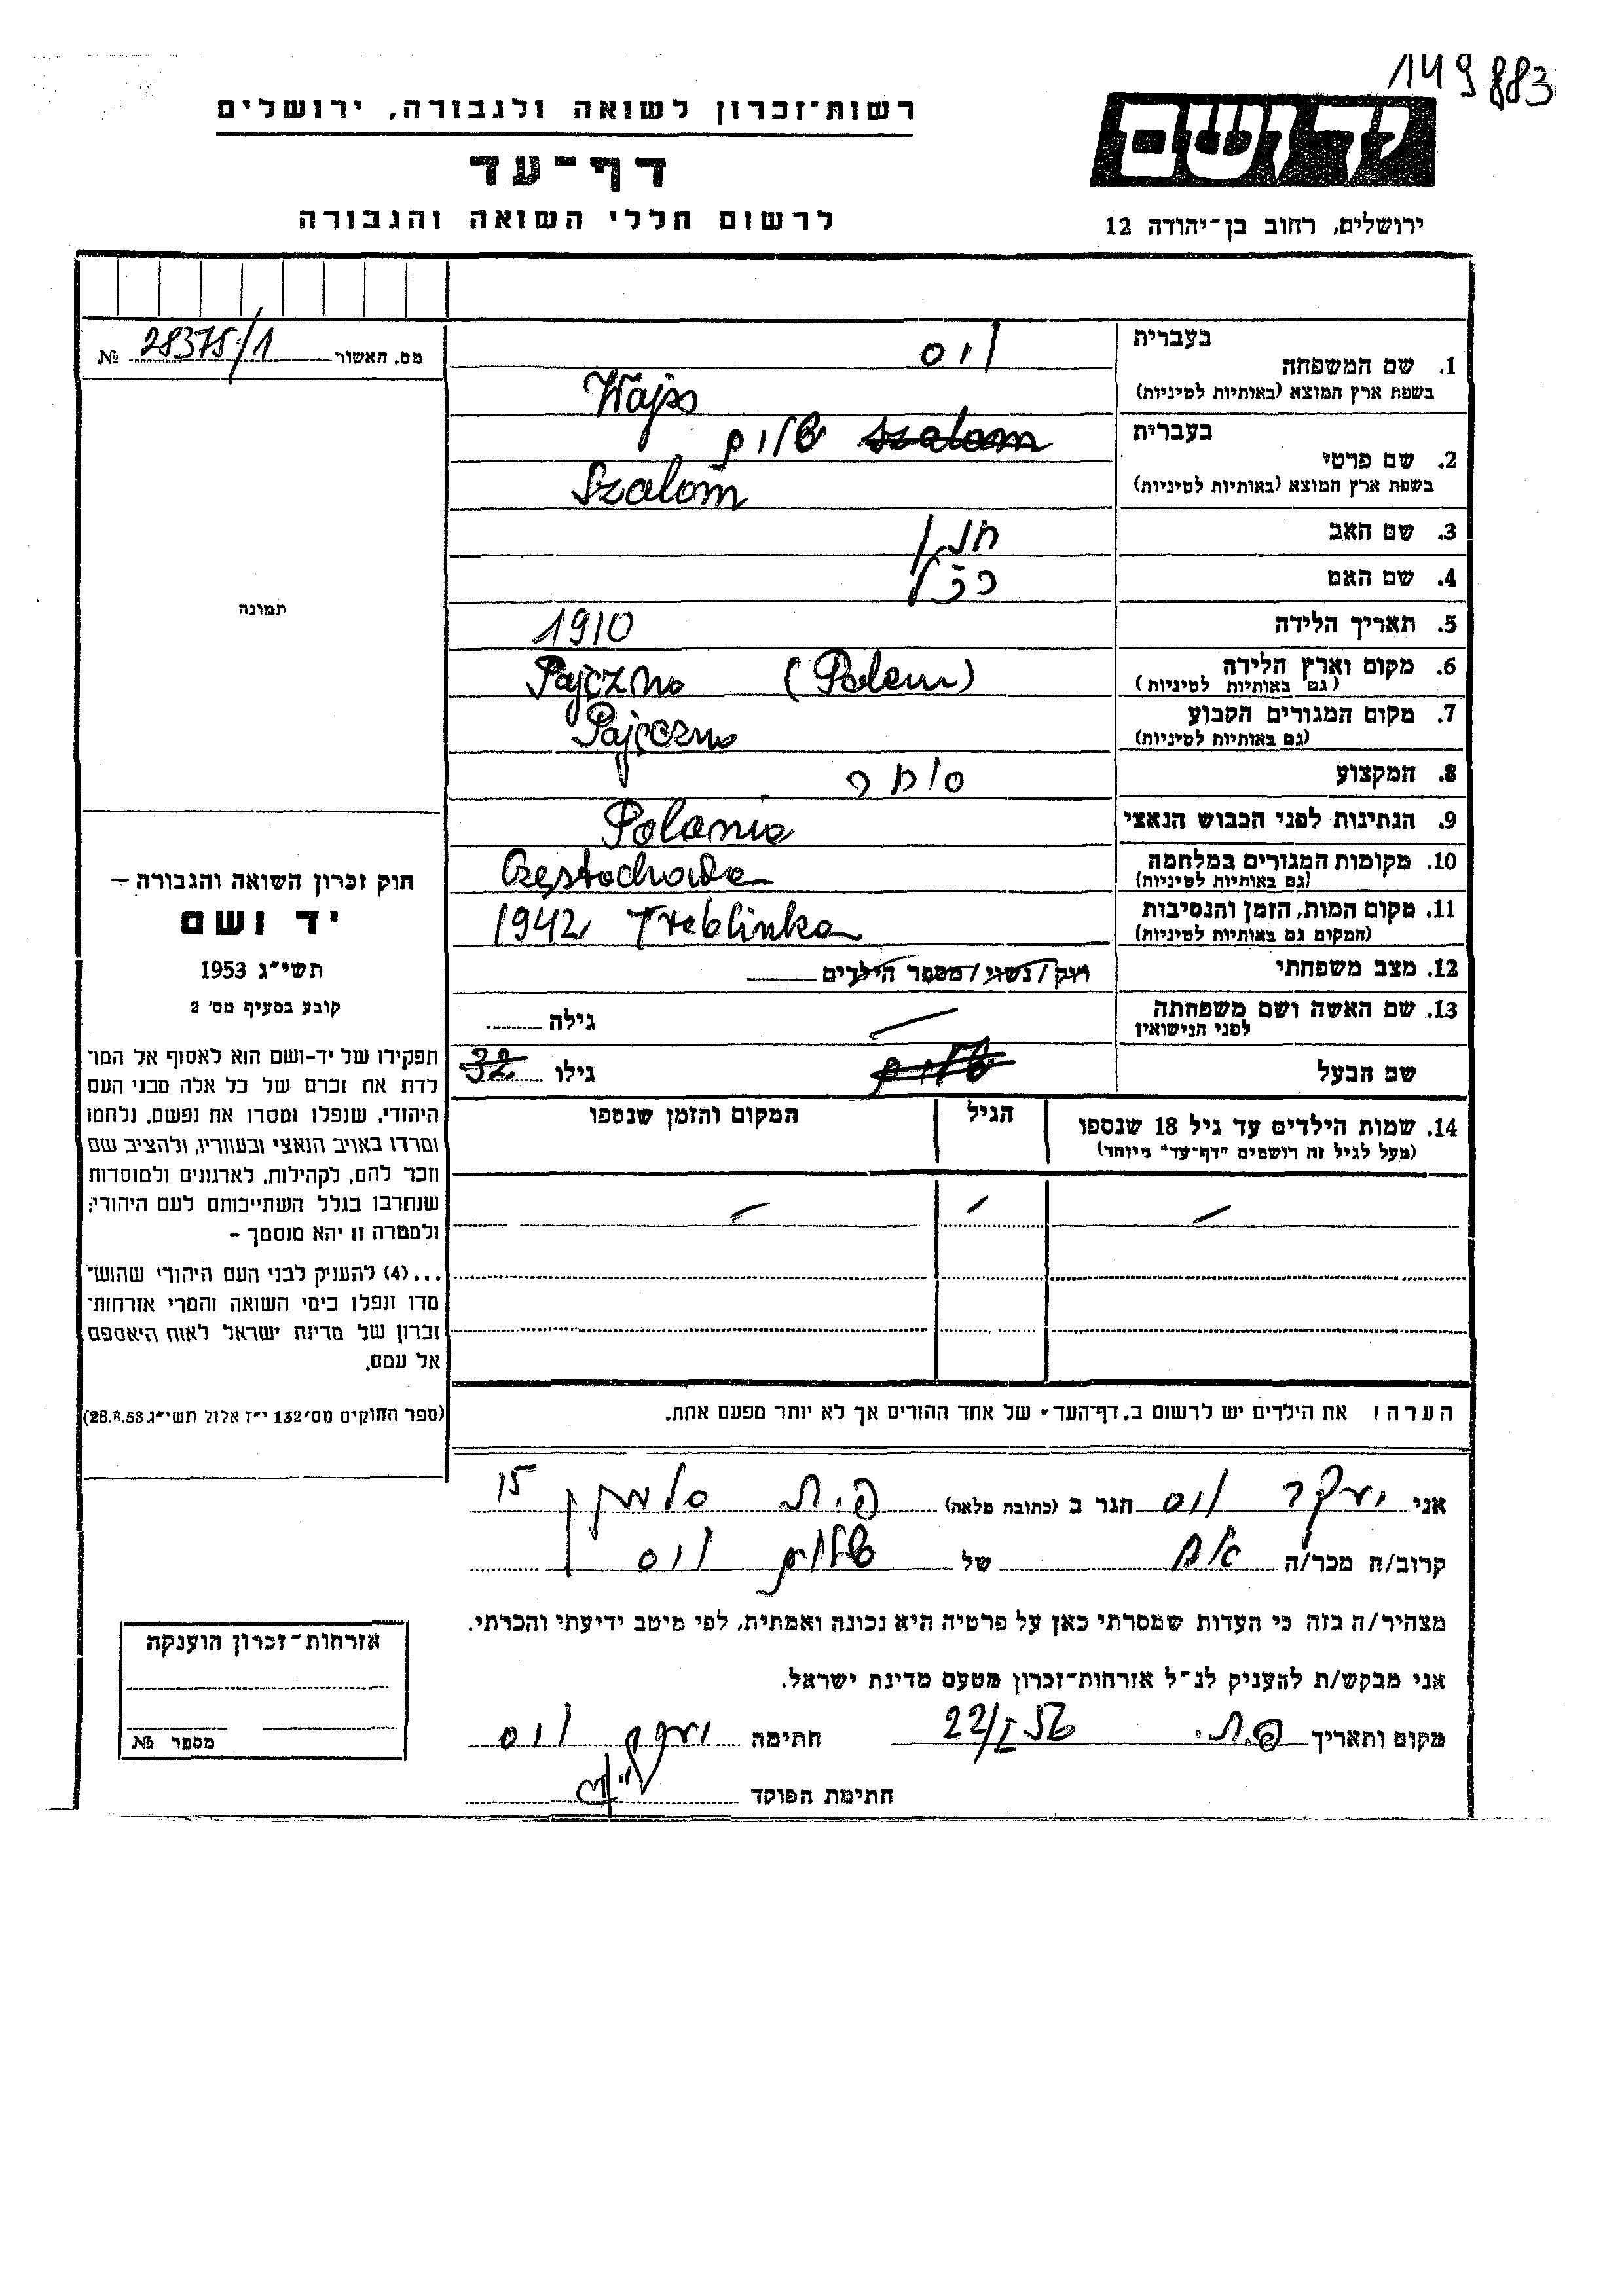 149883
רשות־זכרון לשואה ולגבורה, ירושלים
דף־עד
לרשום חללי השואה והגבורה
ידושם
ירושלים, רחוב בן־יהודה 12
מס. האשור 28375/1 №
תמונה
חוק זכרון השואה והגבורה —
יד ושם
תשי״ג 1953
קובע בסעיף מס׳ 2
תפקידו של יד-ושם הוא לאסוף אל המו־
לדת את זכרם של כל אלה מבני העם
היהודי, שנפלו ומסרו את נפשם, נלחמו
ומרדו באויב הנאצי ובעוזריו, ולהציב שם
וזכר להם, לקהילות, לארגונים ולמוסדות
שנחרבו בגלל השתייכותם לעם היהודי;
ולמטרה זו יהא מוסמך -
...(4) להעניק לבני העם היהודי שהוש־
מדו ונפלו בימי השואה והמרי אזרחות־
זכרון של מדינת ישראל לאות היאספם
אל עמם.
(ספר החוקים מס׳ 132 י״ז אלול תשי״ג 28.8.53)
בעברית וויס
1. שם המשפחה
בשפת ארץ המוצא (באותיות לטיניות) Wajss
בעברית szalom שלום
2. שם פרטי
בשפת ארץ המוצא (באותיות לטיניות) Szalom
3. שם האב
4. שם האם
5. תאריך הלידה 1910
6. מקום וארץ הלידה Pajęczno (Polen)
(גם באותיות לטיניות)
7. מקום המגורים הקבוע Pajęczno
(גם באותיות לטיניות)
8. המקצוע סוחר
9. הנתינות לפני הכבוש הנאצי Polania
10. מקומות המגורים במלחמה Częstochowa
(גם באותיות לטיניות)
11. מקום המות, הזמן והנסיבות 1942 Treblinka
(המקום גם באותיות לטיניות)
12. מצב משפחתי רוק / נשוי / מספר הילדים
13. שם האשה ושם משפחתה גילה
לפני הנישואין
שם הבעל שלום גילו 32
14. שמות הילדים עד גיל 18 שנספו הגיל המקום והזמן שנספו
(מעל לגיל זה רושמים "דף-עד" מיוחד)
הערה: את הילדים יש לרשום ב„דף־העד״ של אחד ההורים אך לא יותר מפעם אחת.
אני יעקב וויס הגר ב (כתובת מלאה) פ.ת. סלמון 15
קרוב/ה מכר/ה אח של שלום וויס
מצהיר/ה בזה כי העדות שמסרתי כאן על פרטיה היא נכונה ואמתית, לפי מיטב ידיעתי והכרתי.
אני מבקש/ת להעניק לנ״ל אזרחות־זכרון מטעם מדינת ישראל.
מקום ותאריך פ.ת. 22/I חתימה יעקב וויס
חתימת הפוקד
אזרחות־זכרון הוענקה
מספר №